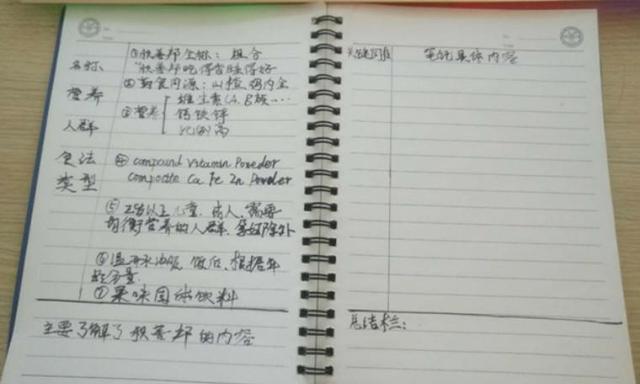 名称
营养
人群
食法
类型
①秋养邦全称：组合
"秋养邦吃得香睡得好
②药食同源：山楂.鸡内金
③营养
维生素(A.B族…
钙铁锌
比例高
④ compound vitamin Powder
composite Ca Fe Zn Powder
⑤2岁以上儿童、成人、需要
均衡营养的人群、
除外
⑥温开水冲服 饭后、根据年
龄分量
⑦果味固体饮料
主要了解了秋养邦的内容
关键词栏
笔记具体内容
总结栏：